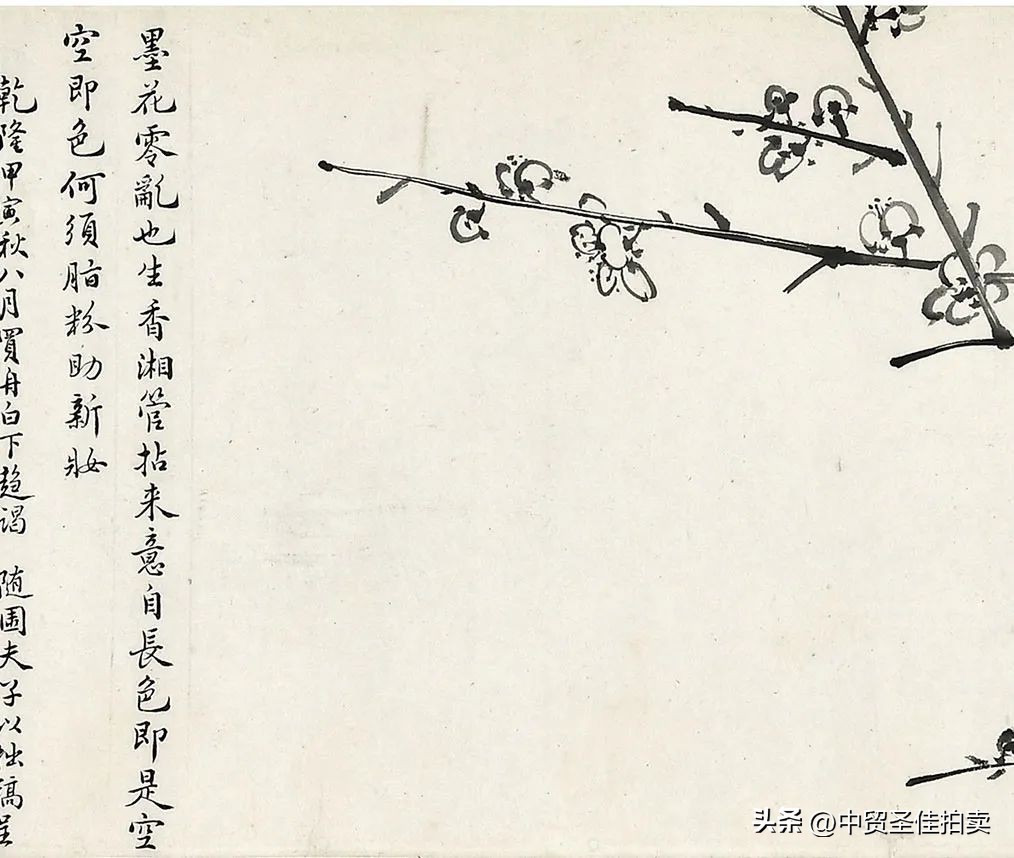 墨花零亂也生香湘管拈来意自長色即是空
空即色何須脂粉助新妝
乾隆甲寅秋八月買舟白下趋谒 随園夫子以拙稿呈
头条 @中贸圣佳拍卖